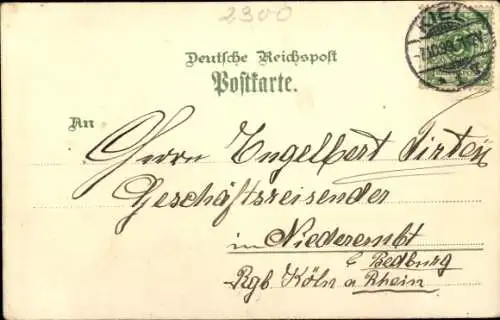 2900
KIEL
Deutsche Reichspost
Postkarte.
An
Herrn Engelbert Sirten
Geschäftsreisender
in Niederembt
b Bedburg
Rgb Köln a Rhein